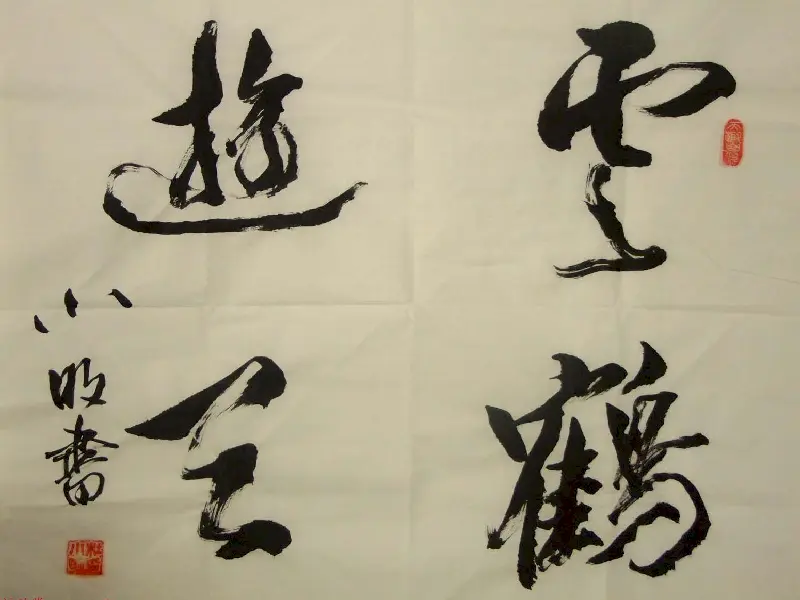 雲鶴
遊天
小 書